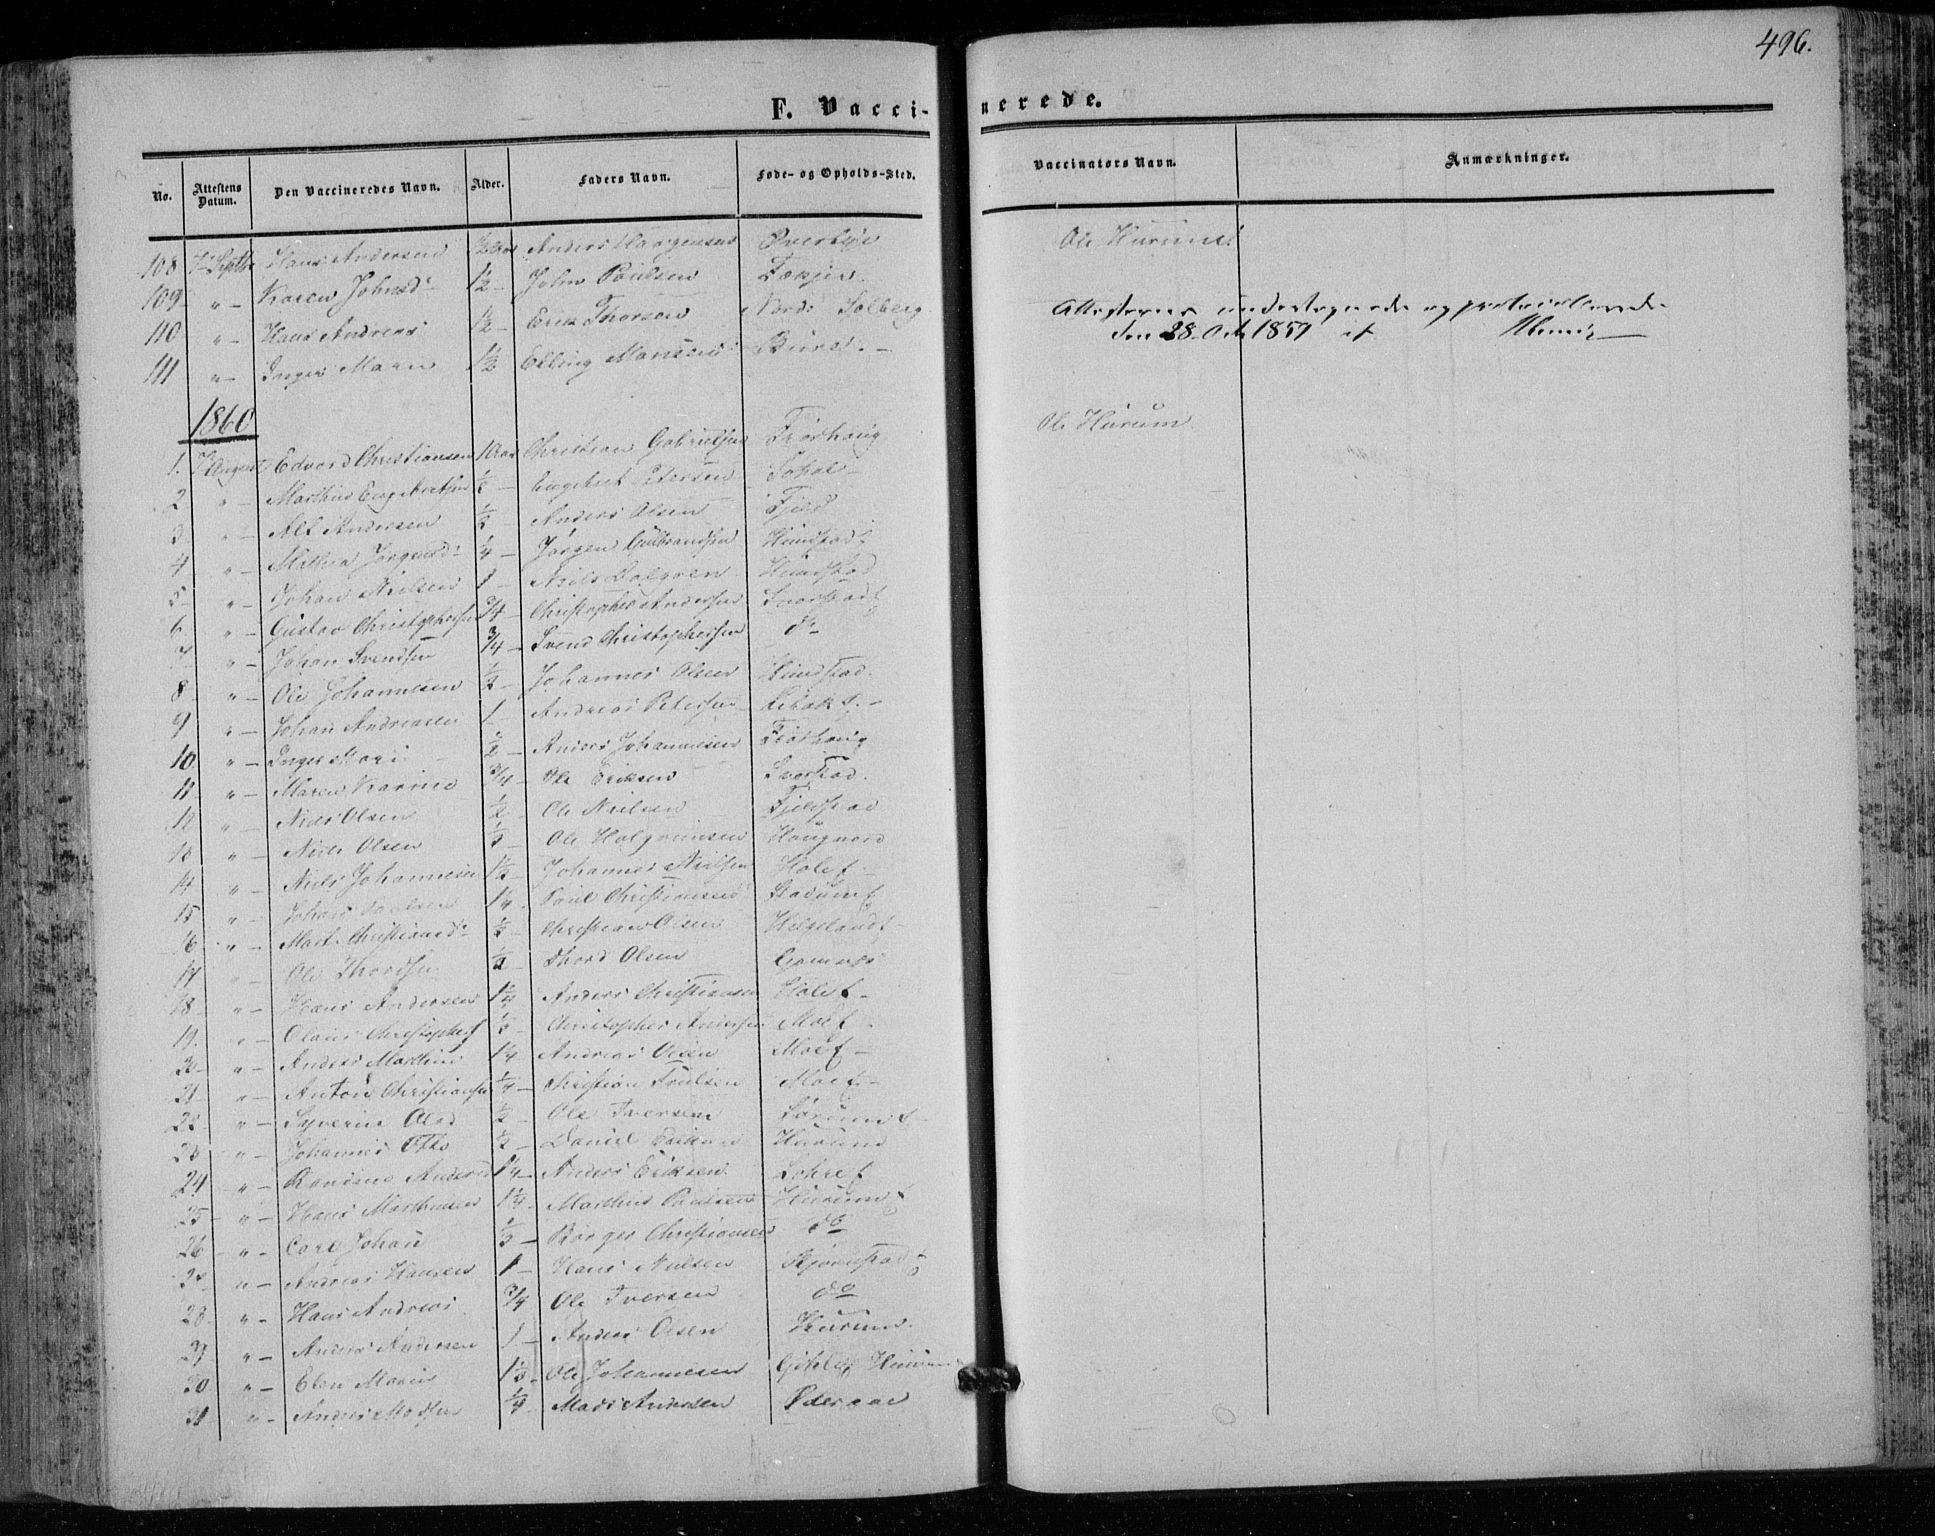 496.
F. Vaccinerede.
No. Attestens Datum. Den Vaccineredes Navn. Alder. Faders Navn. Føde- og Opholds-Sted. Vaccinators Navn. Anmærkninger.
108 7 Septbr Hans Andersen ½ Aar Anders Haagensen Øverbye Ole Hurum
109 " Karen Johnsd: 1½ John Paulsen
110 " Hans Andreas ½ Erik Thorsen Nordr Solberg
111 " Inger Maria 1½ Elling Monssen Bure
Attesterne undertegnede og protocollerede
den 28 Oct 1859 af
1860
1. August Edvard Christiansen 1 Aar Christian Gabrielsen Fjørhaug Ole Hurum
2 " Marthius Engebretsen ½ Engebret Petersen
3 " Alf Andersen ½ Anders Olsen Fjeld
4 " Mathea Jørgensd: ¼ Jørgen Gulbrandsen Hundstad
5 " Johan Nielsen 1 Niels Halgren Hundstad
6 " Gustav Christophersen ¾ Christopher Andersen Svarstad
7 " Johan Svendsen ¾ Svend Christophersen do
8 " Ole Johannesen ½ Johannes Olsen Hundstad.
9 " Johan Andreasen 1 Andreas Petersen
10 " Inger Mari ½ Anders Johannesen Fjørhaug
11 " Maren Karine ¾ Ole Eriksen Svarstad.
12 " Niels Olsen ½ Ole Nielsen Fjeldstad
13 " Niels Olsen ½ Ole Halgrimsen Haugnord
14 " Niels Johannesen 1½ Johannes Nielsen Hole
15 " Johan Paulsen 1¼ Paul Christiansen Stadum
16 " Mart: Christiansd: ½ Christian Olsen
17 " Ole Thordsen ½ Thord Olsen Gomnes
18 " Hans Andersen 1¼ Anders Christiansen Hole
19. " Olaus Christophers ½ Christopher Andersen Moe
20 " Anders Marthin 1¼ Andreas Olsen Moe
21 " Anton Christiansen ¼ Christian Truelsen Moe
22 " Syverine Olsd ½ Ole Iversen Sørum
23 " Johannes Otto ½ Daniel Eriksen Hurum
24 " Andersd 1¼ Anders Eriksen Lohre
25 " Hans Marthinsen 1¼ Marthin Paulsen Hurum
26 " Carl Johan ½ Børger Christiansen do
27 " Andreas Hansen 1 Hans Nielsen Bjørnstad
28 " Hans Andreas ¾ Ole Iversen do
29 " Anders Andersen 1 Anders Olsen Hurum.
30 " Elen Marie 1½ Ole Johannesen Hurum
31 " Anders Madsen ¼ Mads Andersen Oderaae